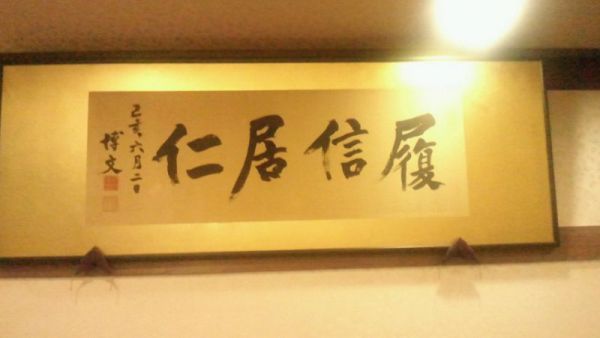 履信居仁
己亥六月二日
博文